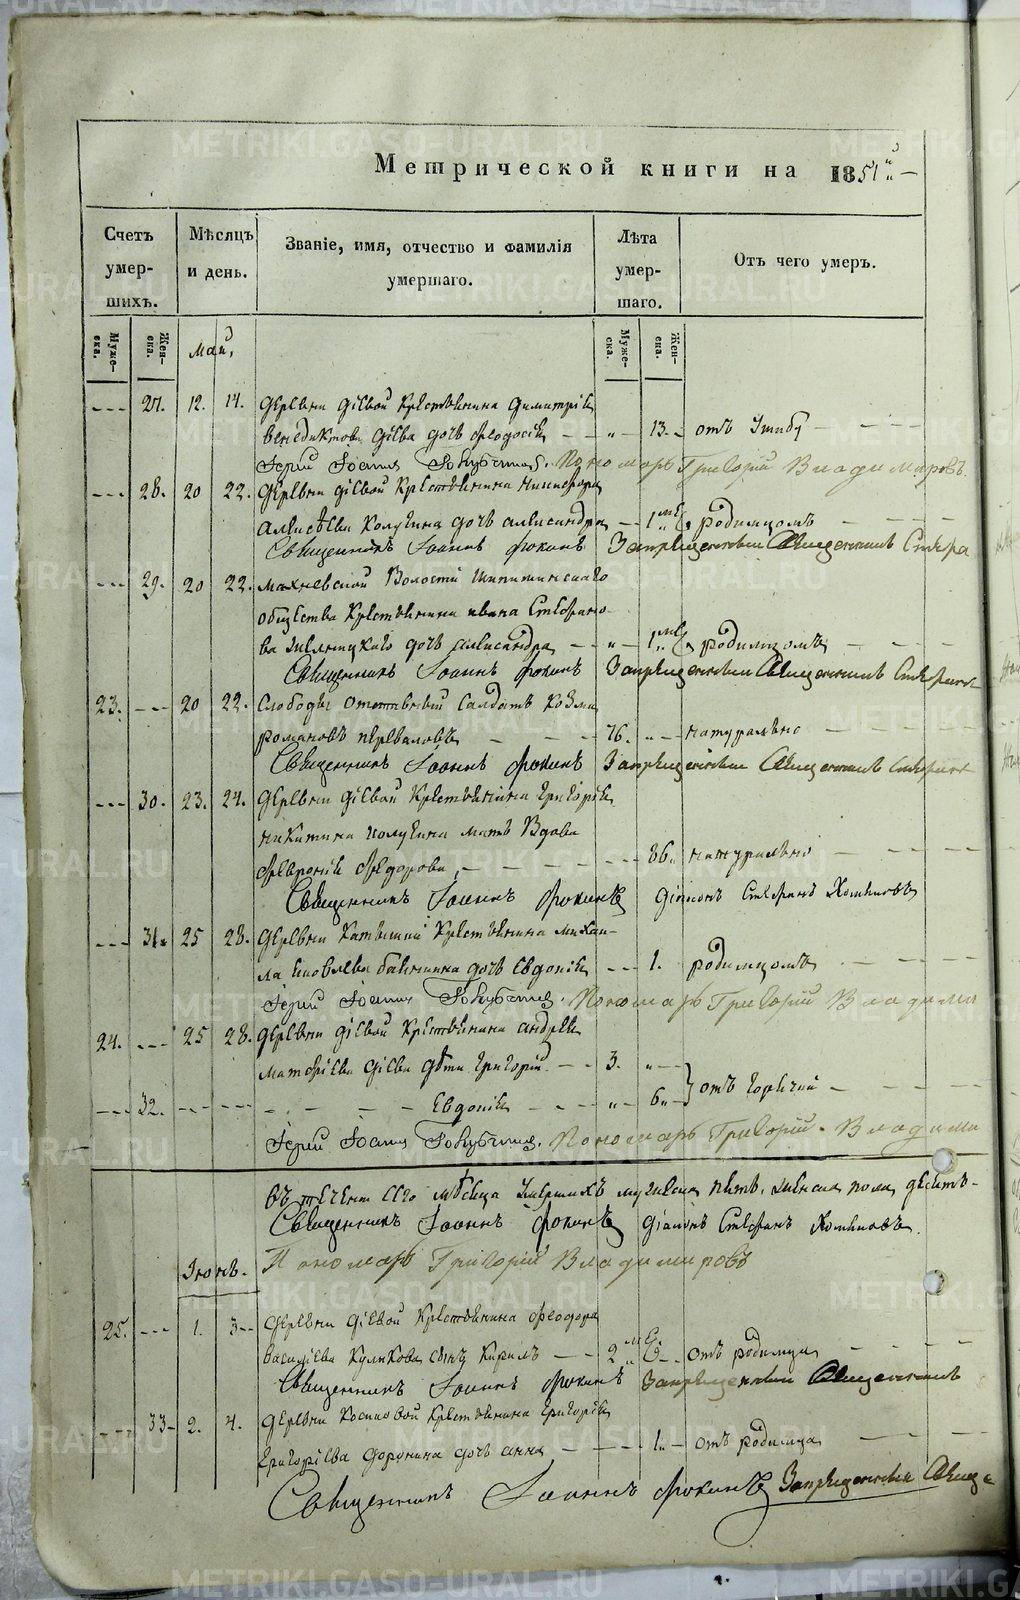 Метрической книги на 1851й
Счетъ умершихъ.
Мѣсяцъ и день.
Званіе, имя, отчество и фамилія умершаго.
Лѣта умершаго.
Отъ чего умеръ.
Мужеска. Женска. Май, Мужеска. Женска.
27. 12. 14. Деревни Дѣевой крестьянина Димитрія
Венедиктова Дѣева дочь Феодосія 13. отъ
Іерей Іоаннъ Пономарь Григорій Владимировъ
28. 20 22. Деревни Дѣевой крестьянина Никифора
Алексѣева дочь Александра 1 мѣ родимцомъ
Священникъ Іоаннъ Фокинъ Запрещенный Священникъ
29. 20 22. Махневской Волости
общества крестьянина Ивана
дочь Александра 1 мѣ родимцомъ
Священникъ Іоаннъ Фокинъ Запрещенный Священникъ
23. 20 22. Слободы отставный Салдатъ Козма
Романовъ Переваловъ 76. натурально
Священникъ Іоаннъ Фокинъ Запрещенный Священникъ
30. 23. 24. Деревни Дѣевой крестьянина Григорія
Никитина мать Вдова
Февронія Федорова 86. натурально
Священникъ Іоаннъ Фокинъ Діаконъ Стефанъ Хомяковъ
31. 25 28. Деревни крестьянина Михаи-
ла Яковлева дочь Евдокія 1. родимцомъ
Іерей Іоаннъ Пономарь Григорій Владими
24. 25 28. Деревни Дѣевой крестьянина Андрея
Дѣева дѣти Григорій 3. отъ горячки
32. Евдокія 6
Іерей Іоаннъ Пономарь Григорій Владими
Въ теченіи сего мѣсяца умершихъ мужеска пять, женска пола десять.
Священникъ Іоаннъ Фокинъ Діаконъ Стефанъ Хомяковъ
Пономарь Григорій Владимировъ
Іюнь.
25. 1. 3 Деревни Дѣевой крестьянина Феодора
Василіева Куликова сынъ Кирилъ 2 мѣ отъ родимца
Священникъ Іоаннъ Фокинъ Запрещенный Священникъ
33 2. 4. Деревни крестьянина Григорія
Григоріева Доронина дочь Анна 1 отъ родимца
Священникъ Іоаннъ Фокинъ Запрещенный Свяще
METRIKI.GASO-URAL.RU